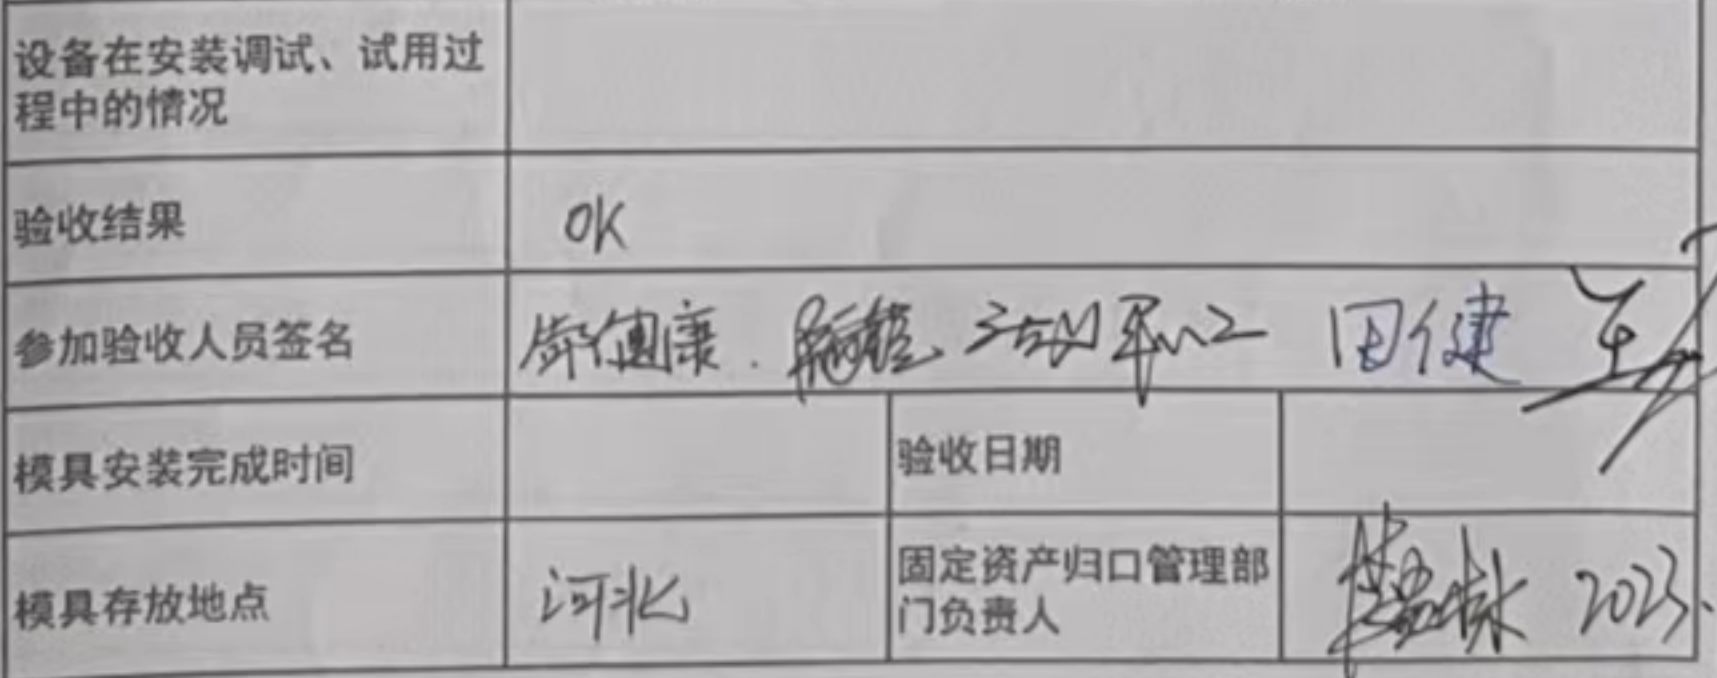 设备在安装调试、试用过
程中的情况
验收结果 OK
参加验收人员签名 健康 田健
模具安装完成时间 验收日期
模具存放地点 河北 固定资产归口管理部
门负责人 2023.